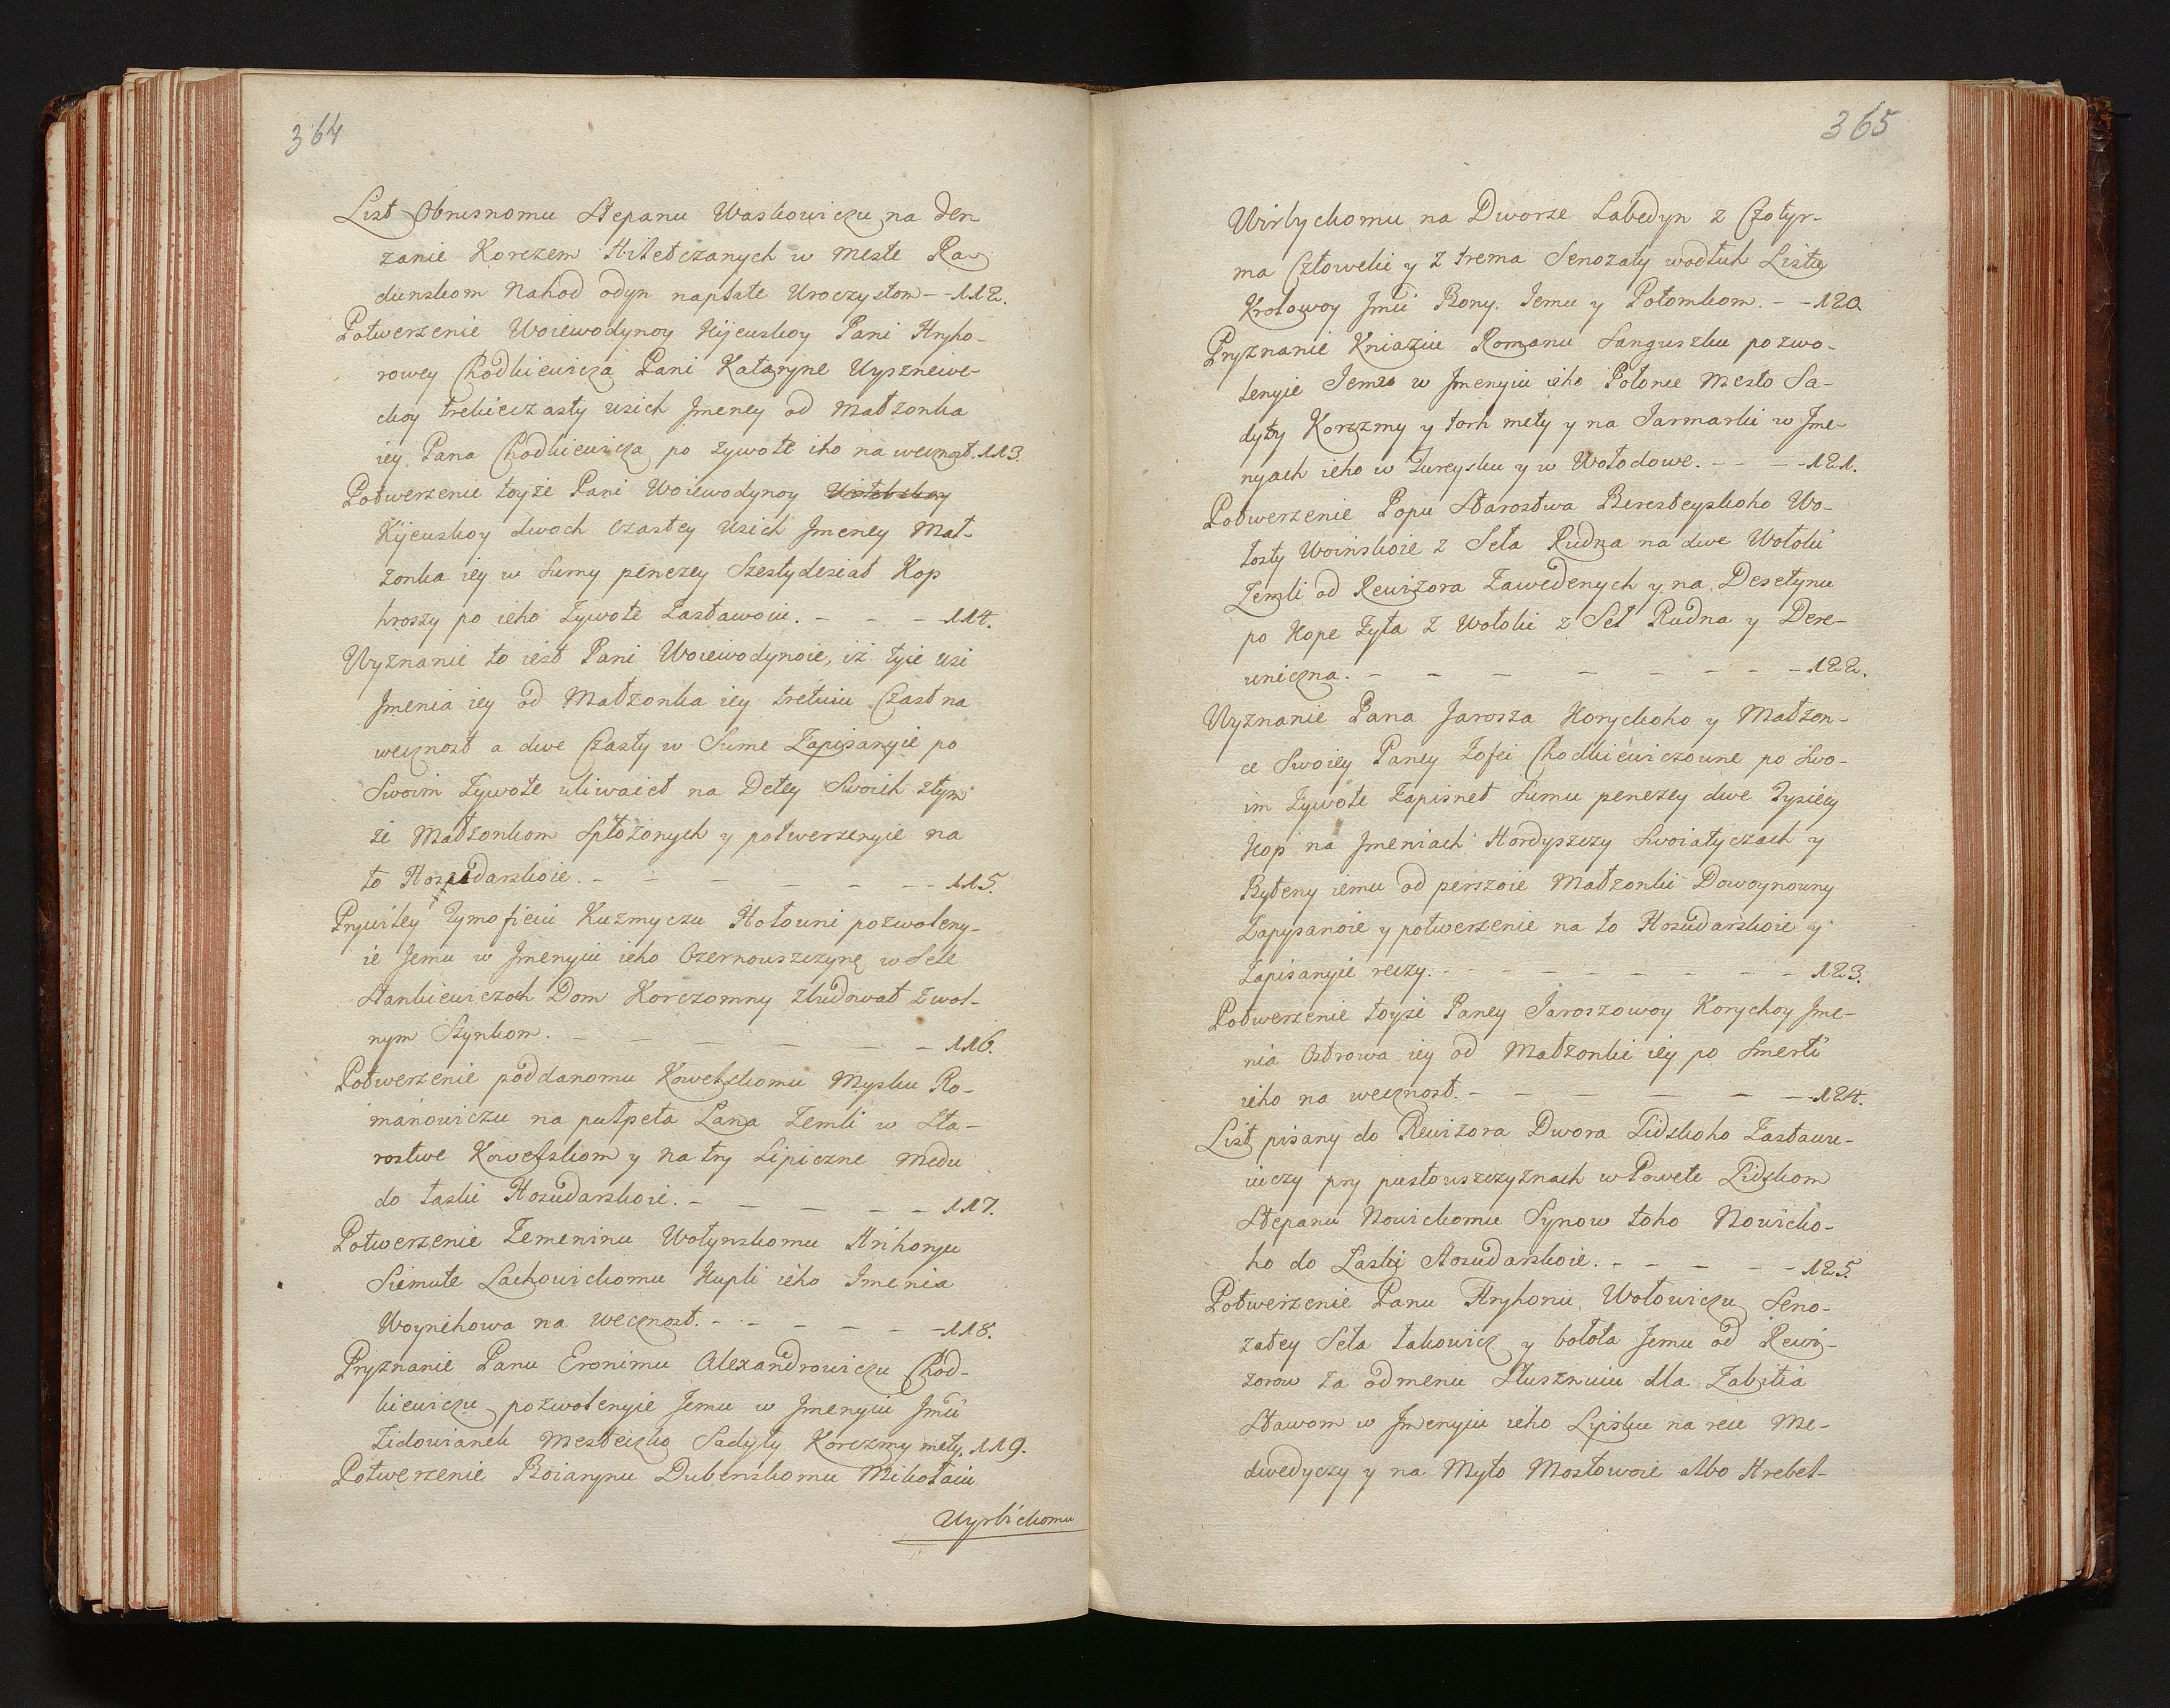 364
List Obnisnomu Stepanu Waskowiczu na der
zanie Korczem Hiletczanych w meste Ra
dunskom nahod odyn naptate Uroczystom - - 112.
Potwerzenie Woiewodynoy Kijewskoy Pani Hryho-
rowey Chodkiewicza Pani Kataryne Wysznewe-
ckoy tretieiczasty usich Jmeney od Małzonka
iey Pana Chodkiewicza po zywote iho na wecznost. 113.
Potwerzenie toyże Pani Woiewodynoy Witebskoy
Kijewskoy dwoch czastey usich Jmeney Mał-
zonka iey w sumy penezey Szestydesiat Kop
hroszy po ieho żywote Zastawoiu. - - - - 114.
Wyznanie to iest Pani Woiewodynoie, iż tyie usi
Jmenia iey od Małzonka iey tretuiu Czast na
wecznost a dwe Czasty w Sume Zapisanyie po
Swoim Żywote uliwaiet na Detey Swoich z tym
że Małzonkom Spłożonych y potwerzenyie na
to Hosudarskoie. - - - - - - - 115.
Prywiley Tymofieiu Kuzmyczu Hołowni pozwoleny-
ie Jemu w Jmenyiu ieho Czernouszczyne w Sele
Stankiewiczoch Dom Korczomny zbudowat z wol-
nym Szynkom. - - - - - - 116.
Potwerzenie poddanomu Kowelskomu Mysku Ro-
manowiczu na pułpeta Łana Zemli w Sta-
rostwe Kowelskom y na try Lipiczne medu
do łaski Hosudarskoie. - - - - - - 117.
Potwerzenie Zemeninu Wołynskomu Hrihoryu
Siemute Lachowickomu Kupli ieho Imenia
Woynihowa na wecznost. - - - - - - 118.
Pryznanie Panu Eronimu Alexandrowiczu Chod-
kiewiczu pozwolenyie Jemu w Jmenyiu Jmu
Zidowianeh Mesteczko Sadyty Korczmy mety. 119.
Potwerzenie Boiarynu Dubenskomu Mikołaiu
Wyrbickomu
365
Wirbyckomu na Dworze Labedyn z Czotyr-
ma Człoweki y z trema Senozaty wodłuh Listu
Krolowoy Jmu Bony. Jemu y Potomkom. - - 120
Pryznanie Kniaziu Romanu Sanguszku pozwo-
lenyie Jemu w Jmenyiu iho Połonie mesto Sa-
dyty Korczmy y torh mety y na Jarmarki w Jme-
nyach ieho w Tureysku y w Wołodowe. - - - - 121.
Potwerzenie Popu Starostwa Beresteyskoho Wo-
łosty Woinskoie z Seła Rudna na dwe Wołoki
Zemli od Rewizora Zawedenych y na Desetynu
po Kope Żyta z Wołoki z Seł Rudna y Dere-
wniczna. - - - - - - - - 122.
Wyznanie Pana Jarosza Koryckoho y Małzon-
ce Swoiey Paney Zofei Chodkiewiczowne po Swo-
im Żywote Zapisnet Sumu penezey dwe Tysiecy
Kop na Jmeniach Hordyszczy Swoiatyczach y
Byteny iemu od perszoie Małzonki Dowoynowny
Zapysanoie y potwerzenie na to Hosudarskoie y
Zapisanyie reczy. - - - - - - - - - 123.
Potwerzenie toyże Paney Jaroszowoy Koryckoy Jme-
nia Ostrowa iey od Małzonki iey po Smerti
ieho na wecznost. - - - - - - 124.
List pisany do Rewizora Dwora Lidskoho Zastawu-
iuczy pry pustouszczyznach w Powete Lidskom
Stepanu Nowickomu Synow toho Nowicko-
ho do Łaski Hosudarskoie. - - - - - 125.
Potwerzenie Panu Hryhoriu Wołowiczu Seno-
zatey Seła takowicz y bołota Jemu od Rewi-
zorow za odmenu Słusznuiu dla Zabitia
Stawom w Jmenyiu ieho Lipsku na rece Me-
dwedyczy y na Myto Mostowoie albo Hrebel-